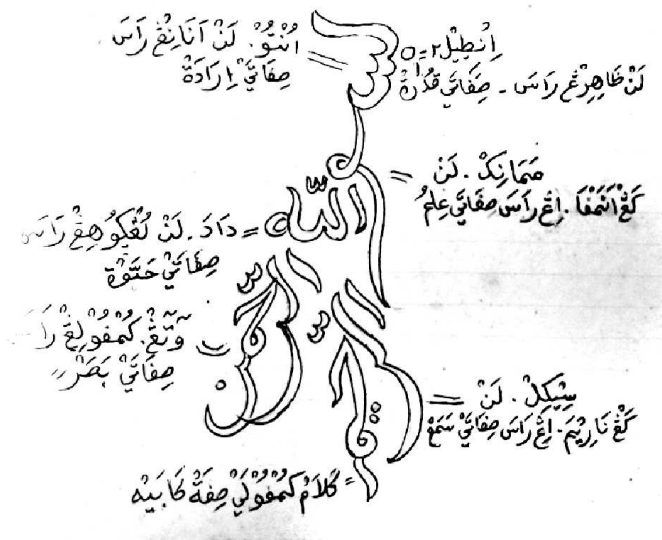 اُنْتُوْ. لَنْ اَنَانِڠْ رَاسَ
صِفَاتَيْ اِرَادَةْ
اِنْطِيْل۲ـه
لَنْ ظَاهِرْڠْ رَاسَ ـ صِفَاتَيْ قُدْرَةْ
مَمَانِكْ. لَنْ
كَڠْ اَنَمْڤَا. اِڠْ رَاسَ صِفَاتَيْ عِلِمُ
اللّٰه
دَادَ. لَنْ لُڠْكُوْهِڠْ رَاسَ
صِفَاتَيْ حَيَوةْ
الرّحمن
وَتَڠْ. كُمْفُوْلِڠْ رَاسَ
صِفَاتَيْ بَصَرْ
الرّحيم
سِيْكِلْ. لَنْ
كَڠْ نَارِيْمَ. اِڠْ رَاسَ صِفَاتَيْ سَمَعْ
كَلَامْ كُمْفُوْلَيْ صِفَةْ كَابَيْه